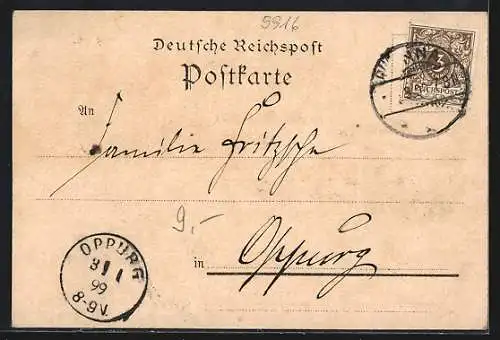 9916
Deutsche Reichspost
Postkarte
3
REICHSPOST
An
Familie Fritzsche
9.-
in Oppurg
OPPURG
99
8-9V.